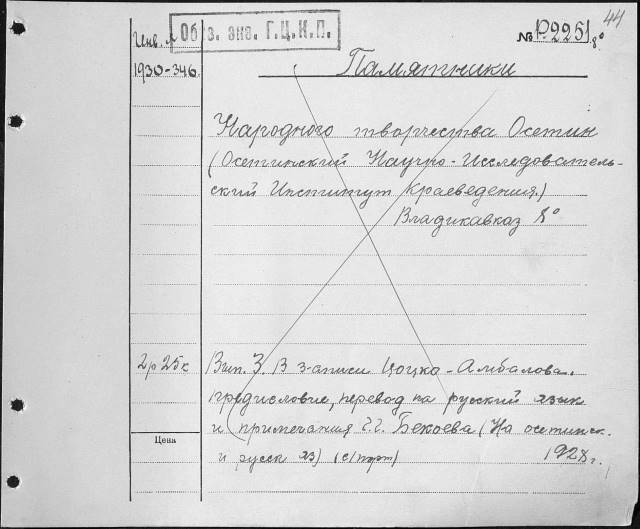 44
Об з. экз. Г.Ц.К.П.
Инв. №
№ Р2251 8°
1930-346.
Памятники
Народного творчества Осетин
(Осетинский Научно-Исследователь-
ский Институт Краеведения.)
Владикавказ 8°
2р 25к
Вып. 3. В записи Цоцко-Амбалова.
предисловие, перевод на русский язык
и примечания Г.Г. Бекоева (На осетинск.
Цена
и русск яз) (с/порт) 1928 г.